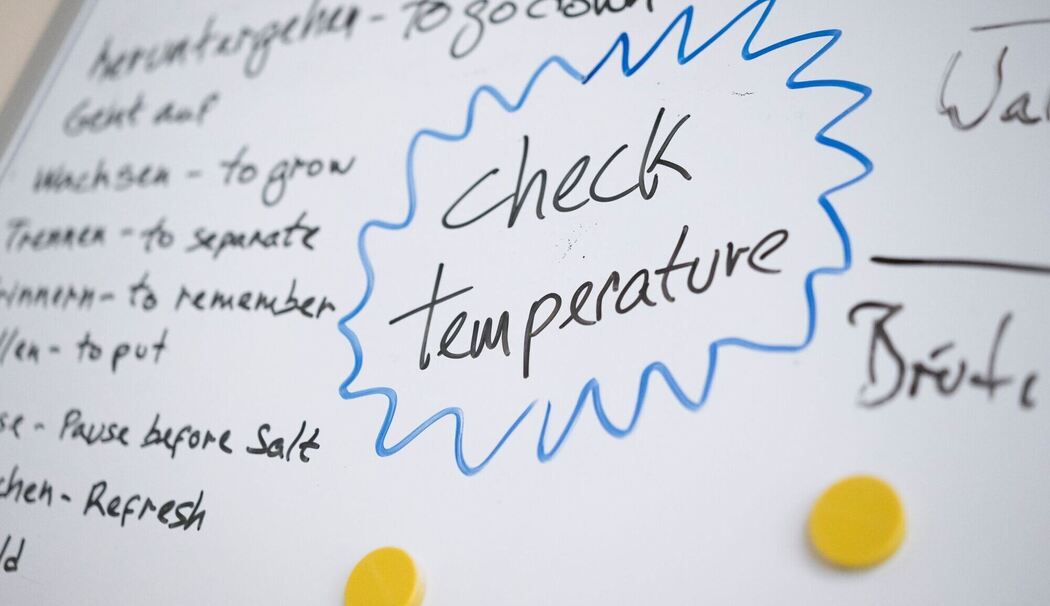 heruntergehen - to go down
Geht auf
Wachsen - to grow
Trennen - to separate
rinnern - to remember
llen - to put
se - Pause before Salt
chen - Refresh
ld
check
temperature